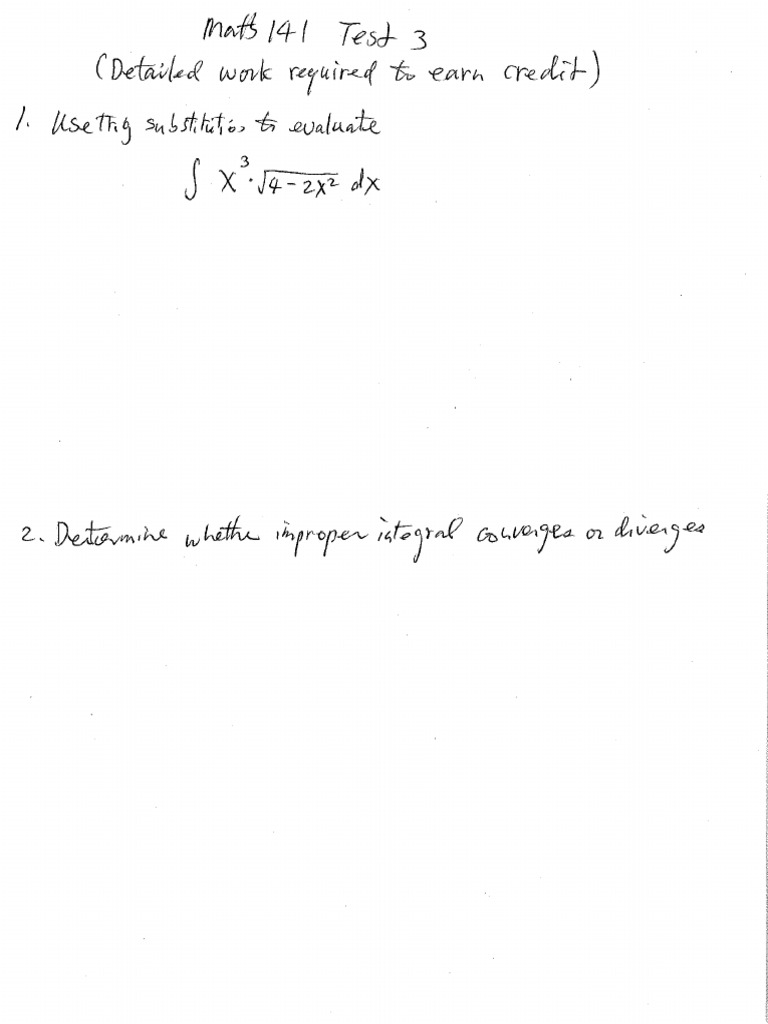 Math 141 Test 3
(Detailed work required to earn credit)
1. Use trig substitution to evaluate
∫ x³·√4-2x² dx
2. Determine whether improper integral converges or diverges